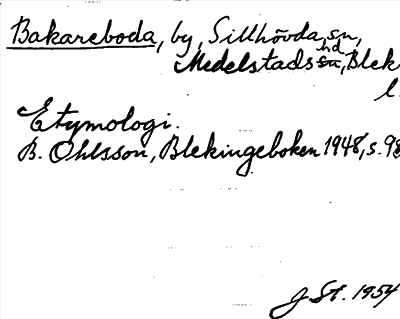 Bakareboda, by, Sillhövda sn,
Medelstads hd, Blek
l.
Etymologi.
B. Ohlsson, Blekingeboken 1948, s. 98
J St. 1954